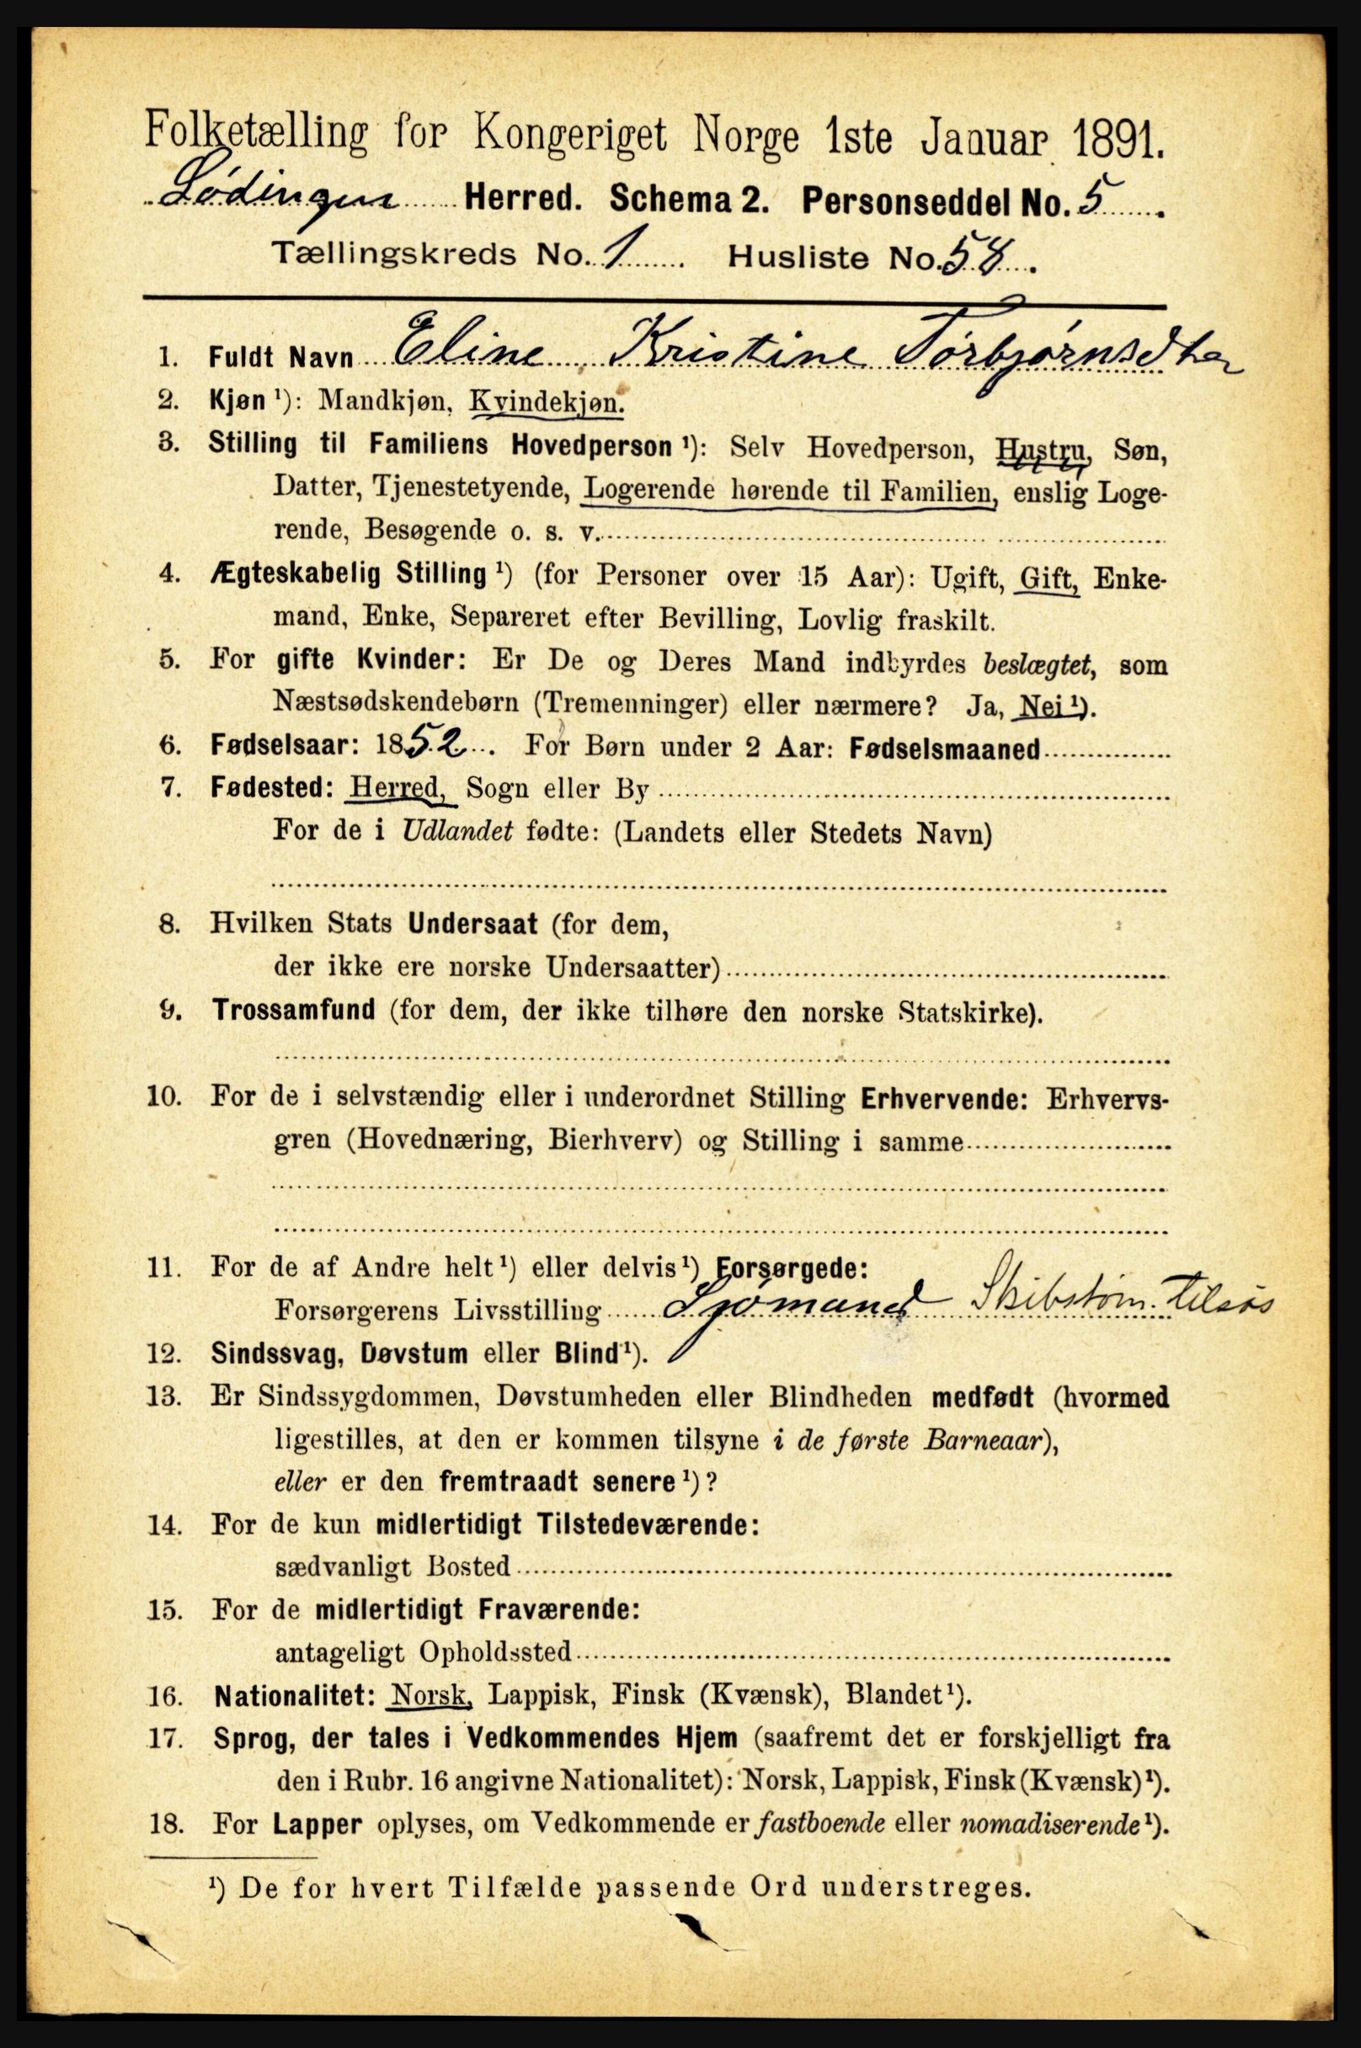 Folketælling for Kongeriget Norge 1ste Januar 1891.
Lødingen Herred. Schema 2. Personseddel No. 5.
Tællingskreds No. 1. Husliste No. 58.
1. Fuldt Navn Eline Kristine Torbjørnsdtr
2. Kjøn ¹): Mandkjøn, Kvindekjøn.
3. Stilling til Familiens Hovedperson ¹): Selv Hovedperson, Hustru, Søn,
Datter, Tjenestetyende, Logerende hørende til Familien, enslig Loge-
rende, Besøgende o. s. v.
4. Ægteskabelig Stilling ¹) (for Personer over 15 Aar): Ugift, Gift, Enke-
mand, Enke, Separeret efter Bevilling, Lovlig fraskilt.
5. For gifte Kvinder: Er De og Deres Mand indbyrdes beslægtet, som
Næstsødskendebørn (Tremenninger) eller nærmere? Ja, Nei ¹).
6. Fødselsaar: 1852. For Børn under 2 Aar: Fødselsmaaned
7. Fødested: Herred, Sogn eller By
For de i Udlandet fødte: (Landets eller Stedets Navn)
8. Hvilken Stats Undersaat (for dem,
der ikke ere norske Undersaatter)
9. Trossamfund (for dem, der ikke tilhøre den norske Statskirke).
10. For de i selvstændig eller i underordnet Stilling Erhvervende: Erhvervs-
gren (Hovednæring, Bierhverv) og Stilling i samme
11. For de af Andre helt ¹) eller delvis ¹) Forsørgede:
Forsørgerens Livsstilling Sjømand Skibstøm. tilsøs
12. Sindssvag, Døvstum eller Blind ¹).
13. Er Sindssygdommen, Døvstumheden eller Blindheden medfødt (hvormed
ligestilles, at den er kommen tilsyne i de første Barneaar),
eller er den fremtraadt senere ¹)?
14. For de kun midlertidigt Tilstedeværende:
sædvanligt Bosted
15. For de midlertidigt Fraværende:
antageligt Opholdssted
16. Nationalitet: Norsk, Lappisk, Finsk (Kvænsk), Blandet ¹).
17. Sprog, der tales i Vedkommendes Hjem (saafremt det er forskjelligt fra
den i Rubr. 16 angivne Nationalitet): Norsk, Lappisk, Finsk (Kvænsk) ¹).
18. For Lapper oplyses, om Vedkommende er fastboende eller nomadiserende ¹).
¹) De for hvert Tilfælde passende Ord understreges.